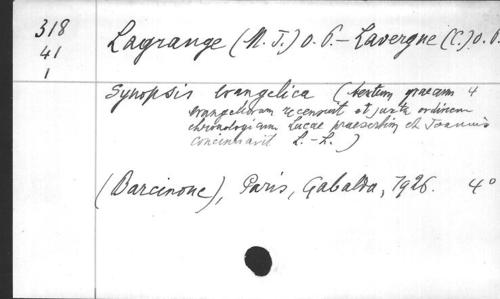 318
41
1
Lagrange (M. J.) o. P. – Lavergne (C.) o. P.
Synopsis evangelica (textum graecum 4
evangeliorum recensuit et juxta ordinem
chronologicum Lucae praesertim et Joannis
concinnavit L.-L.)
(Barcinone), Paris, Gabalda, 1926. 4°